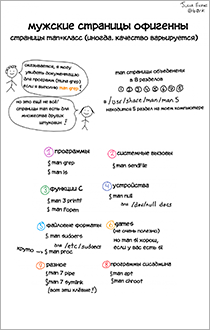 Julia Evans
@b0rk
мужские страницы офигенны
страницы man=класс (иногда. качество варьируется)
оказывается, я могу
увидеть документацию
для программ (типа grep)
если я выполню man grep
но это ещё не всё!
страницы man есть для
множества других
штуковин!
man страницы объединены
в 8 разделов
1 2 3 4 5 6 7 8
/usr/share/man/man5
находится 5 раздел на моём компьютере
1 программы
$ man grep
$ man ls
2 системные вызовы
$ man sendfile
3 функции C
$ man 3 printf
$ man fopen
4 устройства
$ man null
для /dev/null docs
5 файловые форматы
$ man sudoers
для /etc/sudoers
круто → $ man proc
6 games
(не очень полезно)
но man sl хорош,
если у вас есть sl
7 разное
$ man 7 pipe
$ man 7 symlink
(вот эти клёвые!)
8 программы сисадмина
$ man apt
$ man chroot